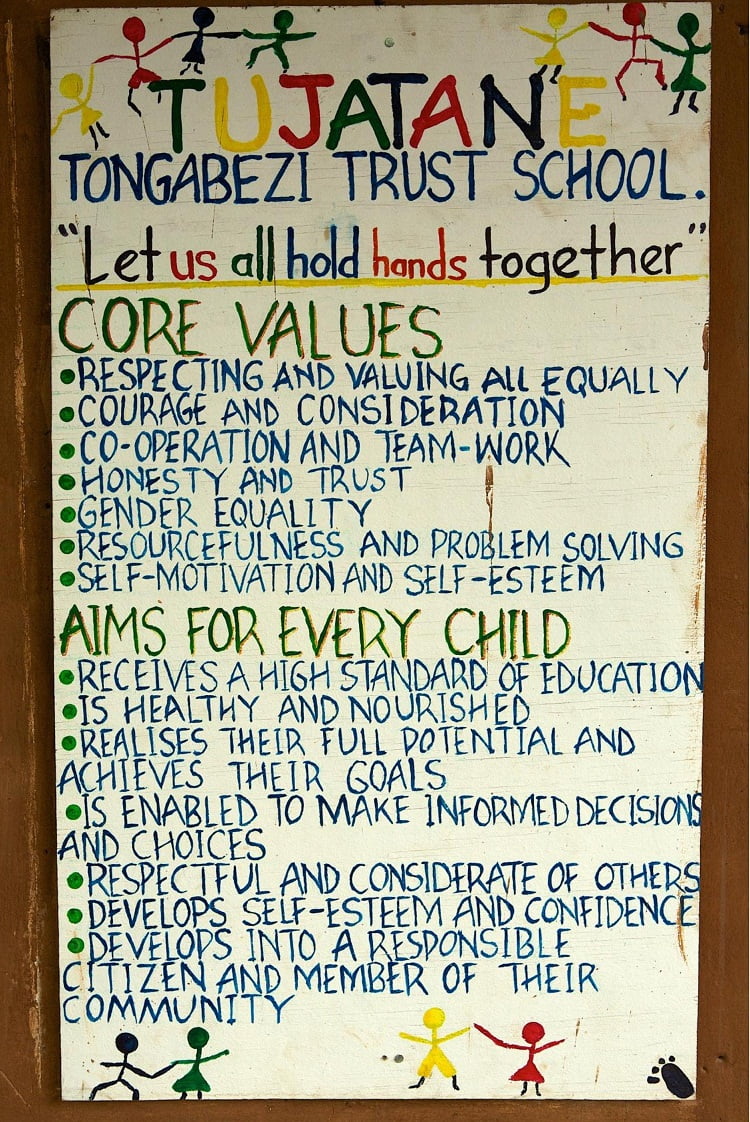 TUJATANE
TONGABEZI TRUST SCHOOL.
"Let us all hold hands together"
CORE VALUES
•RESPECTING AND VALUING All EQUALLY
•COURAGE AND CONSIDERATION
•CO-OPERATION AND TEAM-WORK
•HONESTY AND TRUST
•GENDER EQUALITY
•RESOURCEFULNESS AND PROBLEM SOLVING
•SELF-MOTIVATION AND SELF-ESTEEM
AIMS FOR EVERY CHILD
•RECEIVES A HIGH STANDARD OF EDUCATION
•IS HEALTHY AND NOURISHED
•REALISES THEIR FULL POTENTIAL AND
ACHIEVES THEIR GOALS
•IS ENABLED TO MAKE INFORMED DECISIONS
AND CHOICES
•RESPECTFUL AND CONSIDERATE OF OTHERS
•DEVELOPS SELF-ESTEEM AND CONFIDENCE
•DEVELOPS INTO A RESPONSIBLE
CITIZEN AND MEMBER OF THEIR
COMMUNITY